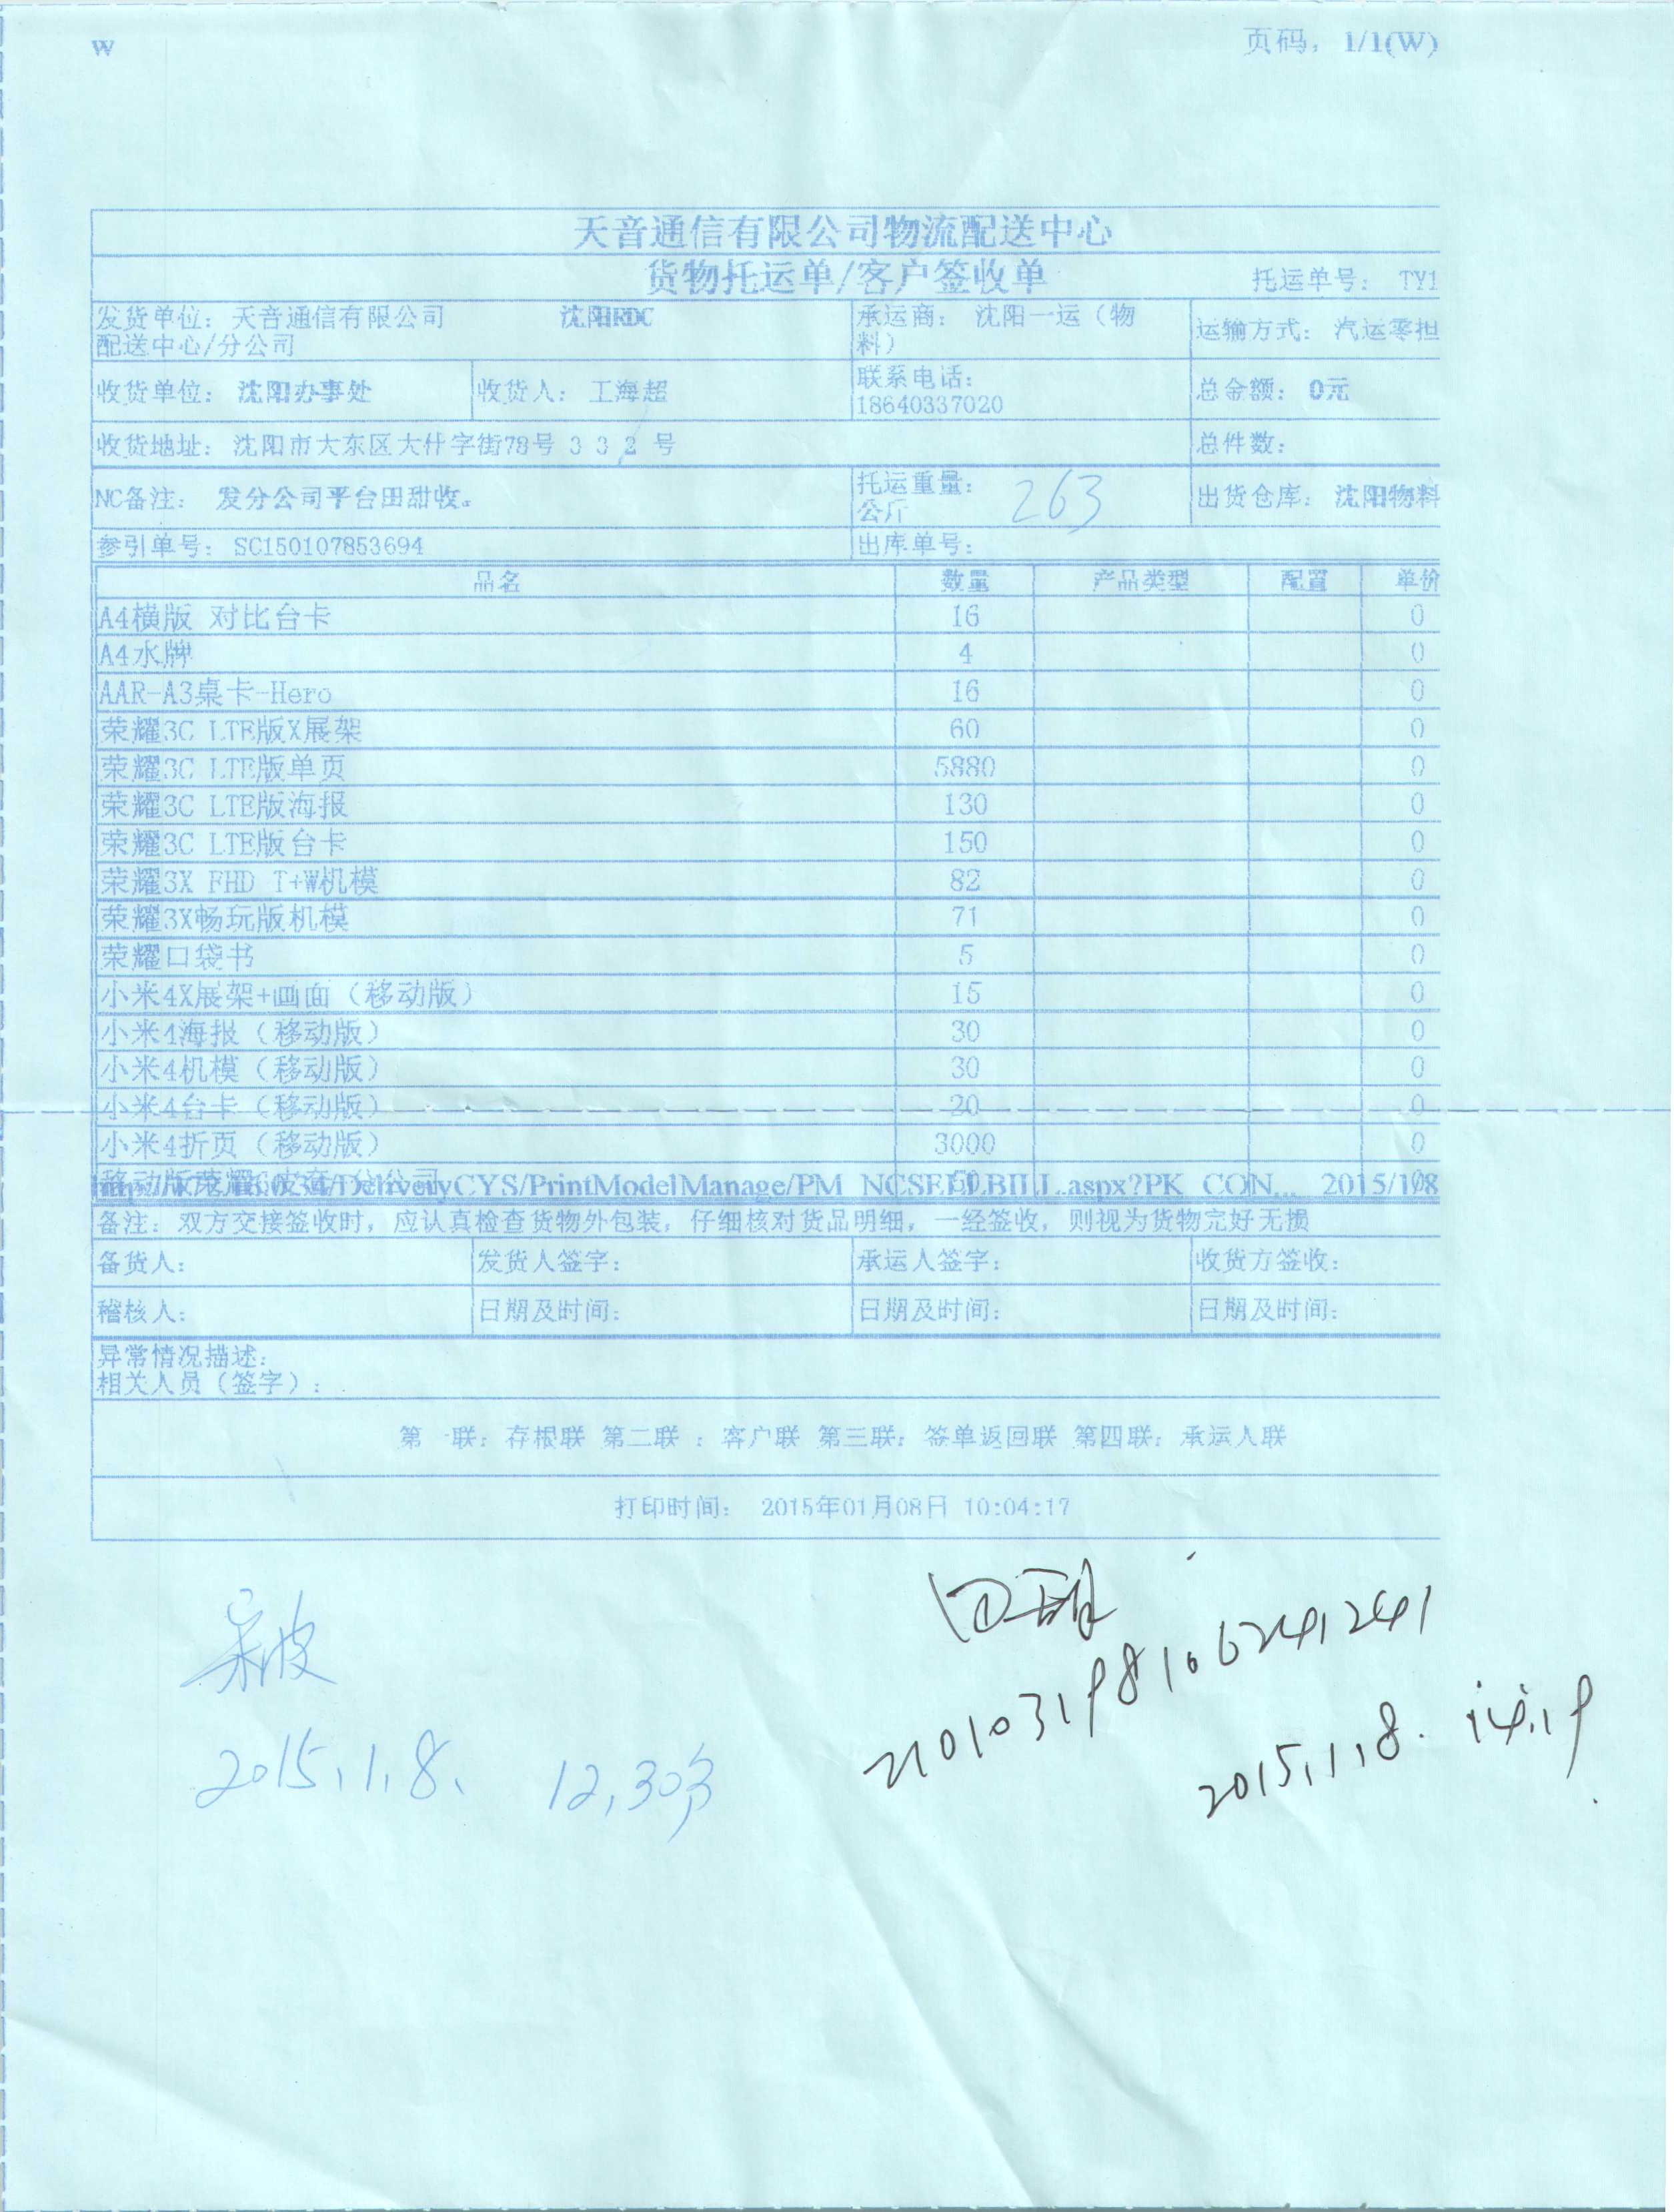 W
页码，1/1(W)
天音通信有限公司物流配送中心
货物托运单/客户签收单
托运单号： TY1
发货单位：天音通信有限公司 沈阳RDC
配送中心/分公司
承运商： 沈阳一运（物
料）
运输方式： 汽运零担
收货单位： 沈阳办事处
收货人： 王海超
联系电话：
18640337020
总金额： 0元
收货地址： 沈阳市大东区大什字街78号 3 3 2 号
总件数：
NC备注： 发分公司平台田甜收。
托运重量： 263
公斤
出货仓库： 沈阳物料
参引单号： SC150107853694
出库单号：
品名 数量 产品类型 配置 单价
A4横版 对比台卡 16 0
A4水牌 4 0
AAR-A3桌卡-Hero 16 0
荣耀3C LTE版X展架 60 0
荣耀3C LTE版单页 5880 0
荣耀3C LTE版海报 130 0
荣耀3C LTE版台卡 150 0
荣耀3X FHD T+W机模 82 0
荣耀3X畅玩版机模 71 0
荣耀口袋书 5 0
小米4X展架+画面（移动版） 15 0
小米4海报（移动版） 30 0
小米4机模（移动版） 30 0
小米4台卡（移动版） 20 0
小米4折页（移动版） 3000 0
DeliveryCYS/PrintModelManage/PM_NCSELLBILL.aspx?PK_CON... 2015/1/8
备注：双方交接签收时，应认真检查货物外包装，仔细核对货品明细，一经签收，则视为货物完好无损
备货人： 发货人签字： 承运人签字： 收货方签收：
稽核人： 日期及时间： 日期及时间： 日期及时间：
异常情况描述：
相关人员（签字）：
第一联：存根联 第二联 ：客户联 第三联：签单返回联 第四联：承运人联
打印时间： 2015年01月08日 10:04:17
田甜
210103198106241241
2015.1.8. 14.19
2015.1.8. 12.30分